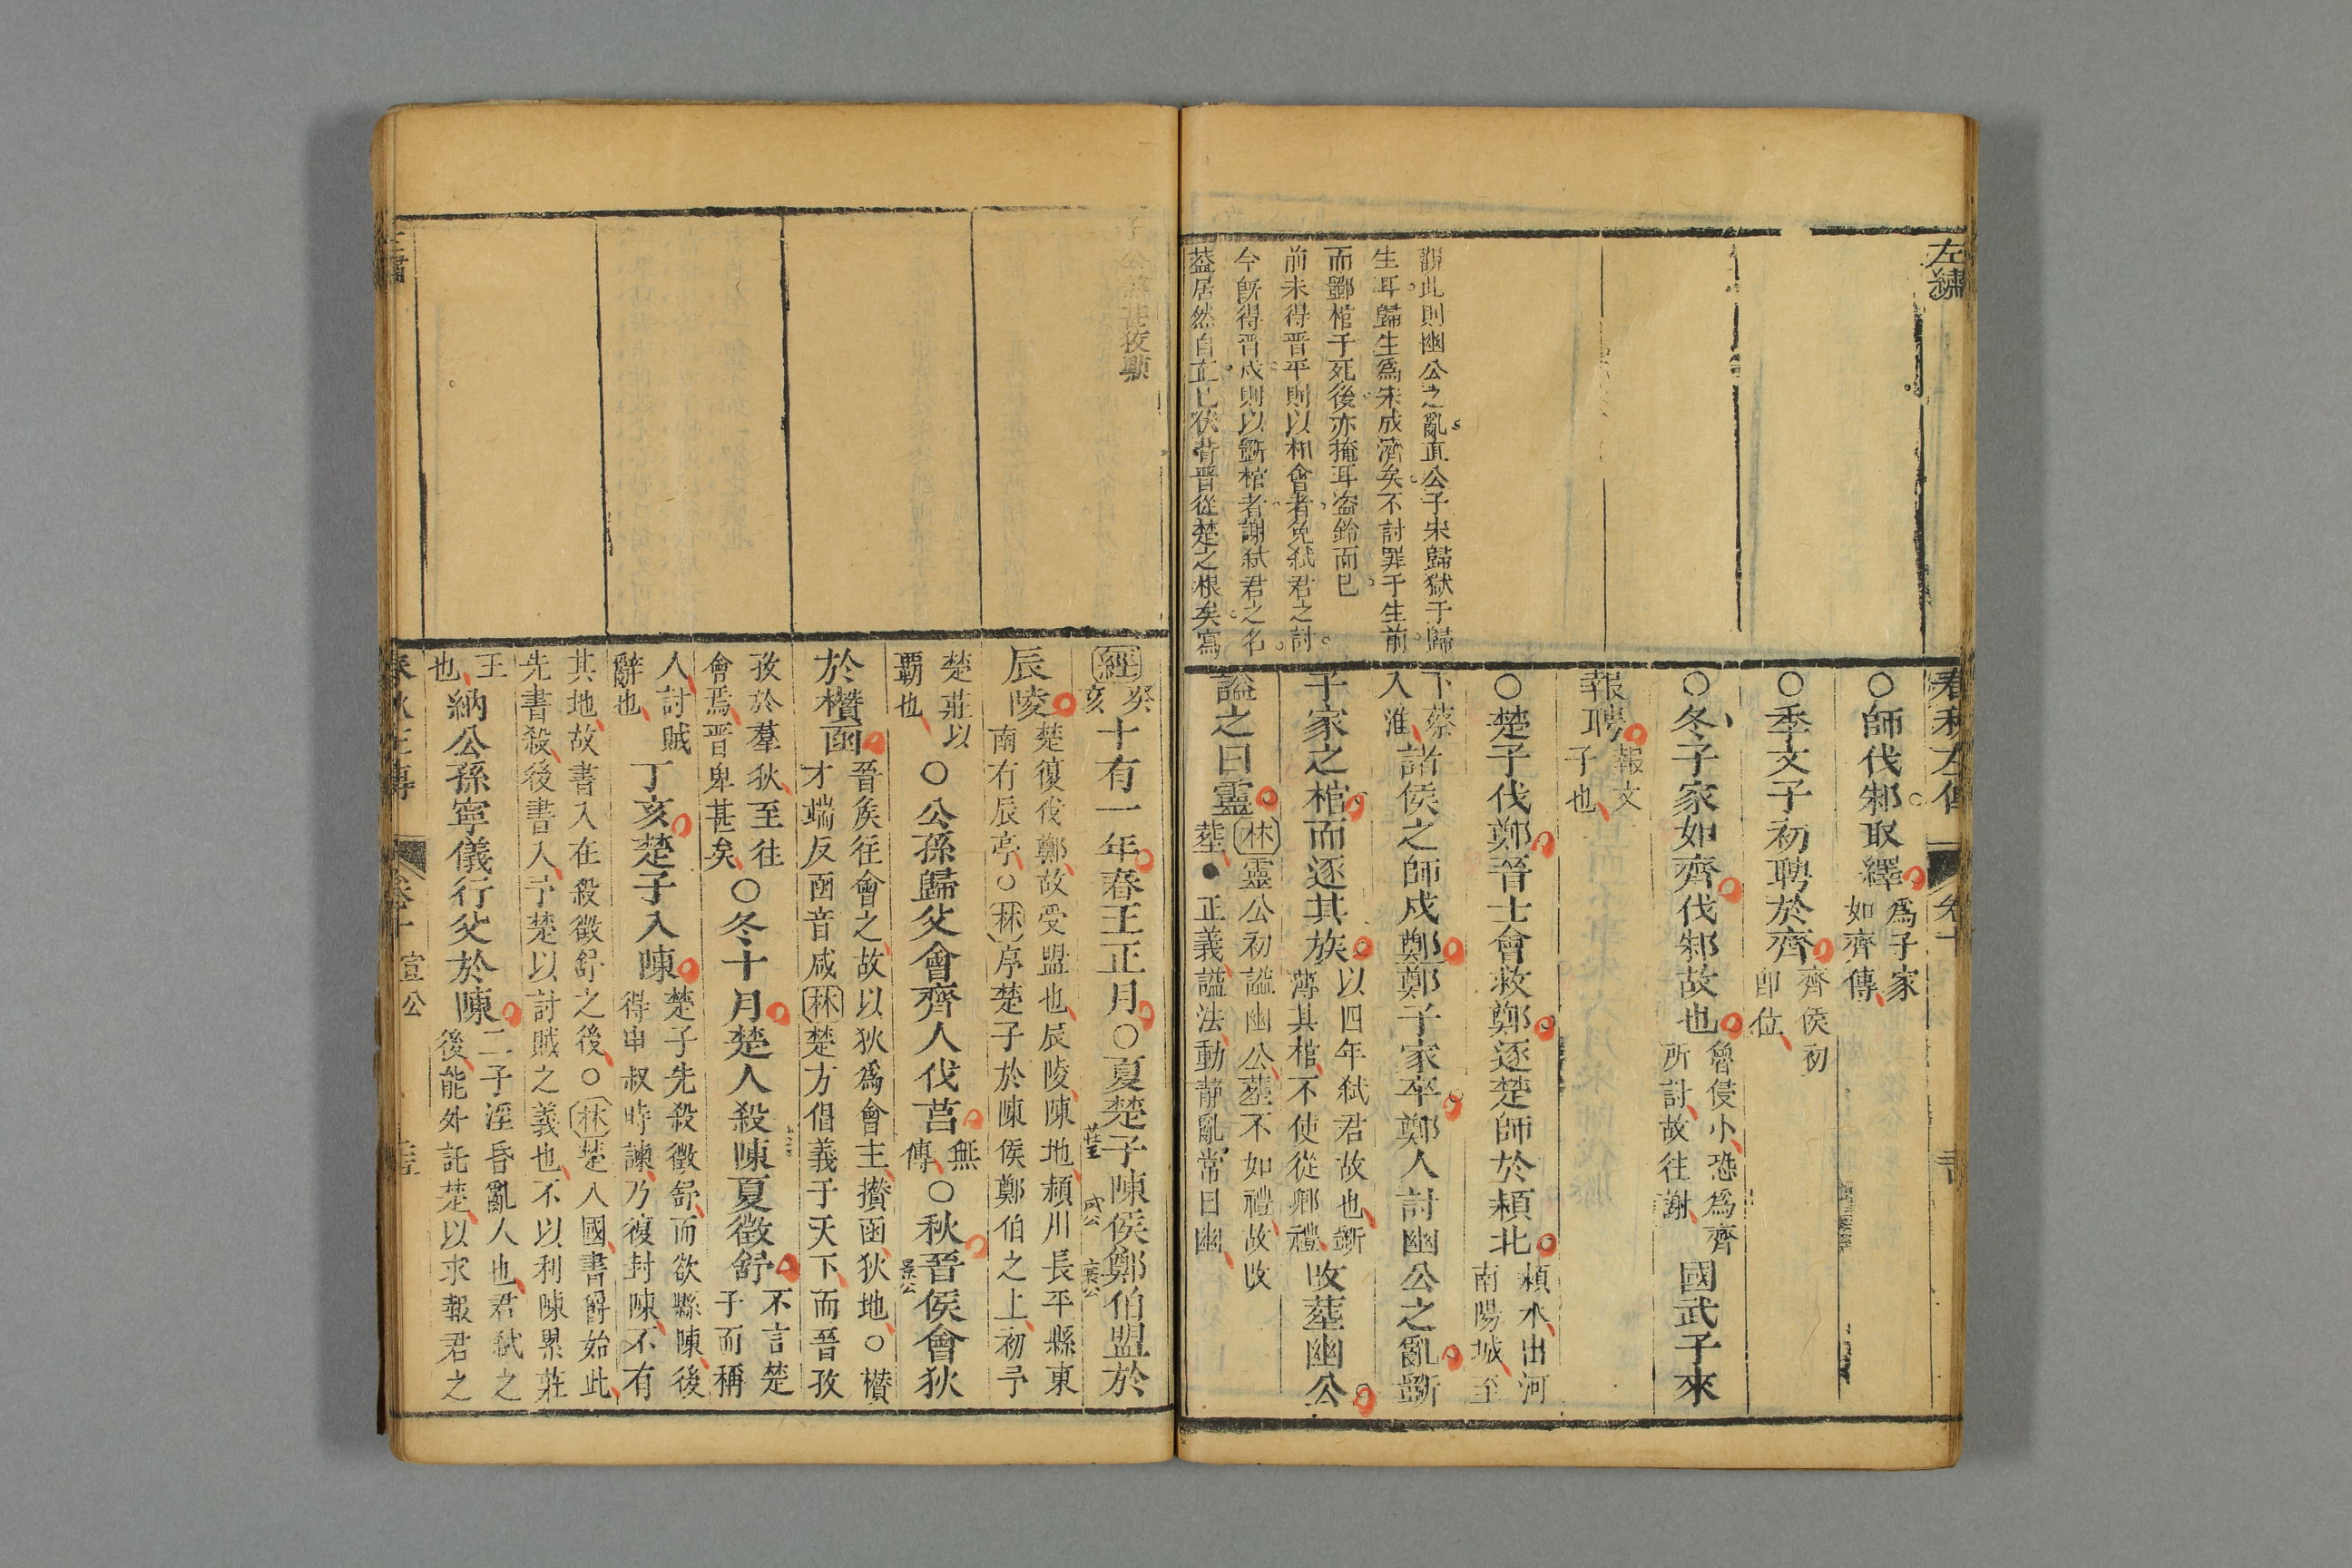 左繡
觀此則幽公之亂直公子宋歸獄于歸
生耳歸生爲宋成濟矣不討罪于生前
而斲棺于死後亦掩耳盗鈴而已
前未得晋平則以相會者免弒君之討
今旣得晋成則以斲棺者謝弒君之名
葢居然自立已伏背晋從楚之根矣寫
春秋左傳
卷十
○師伐邾取繹爲子家
如齊傳
○季文子初聘於齊齊侯初
卽位
○冬子家如齊伐邾故也魯侵小恐爲齊
所討故往謝國武子來
報聘報文
子也
○楚子伐鄭晉士會救鄭逐楚師於潁北潁水出河
南陽城至
下蔡
入淮諸侯之師戍鄭鄭子家卒鄭人討幽公之亂斲
子家之棺而逐其族以四年弒君故也斲
薄其棺不使從卿禮改葬幽公
謚之曰靈林靈公初謚幽公葬不如禮故改
葬●正義謚法動靜亂常曰幽
經癸
亥十有一年春王正月○夏楚子陳侯鄭伯盟於
莊王
成公
襄公
辰陵楚復伐鄭故受盟也辰陵陳地潁川長平縣東
南有辰亭○林序楚子於陳侯鄭伯之上初予
楚莊以
霸也○公孫歸父會齊人伐莒無
傳○秋晉侯會狄
景公
於欑函晉侯往會之故以狄爲會主欑函狄地○欑
才端反函音咸林楚方倡義于天下而晉孜
孜於羣狄至往
會焉晋卑甚矣○冬十月楚人殺陳夏徵舒不言楚
子而稱
人討賊
辭也丁亥楚子入陳楚子先殺徵舒而欲縣陳後
得申叔時諫乃復封陳不有
其地故書入在殺徵舒之後○林楚入國書爵始此
先書殺後書入予楚以討賊之義也不以利陳累莊
王
也納公孫寧儀行父於陳二子淫昏亂人也君弒之
後能外託楚以求報君之
春秋左傳
卷十
宣公